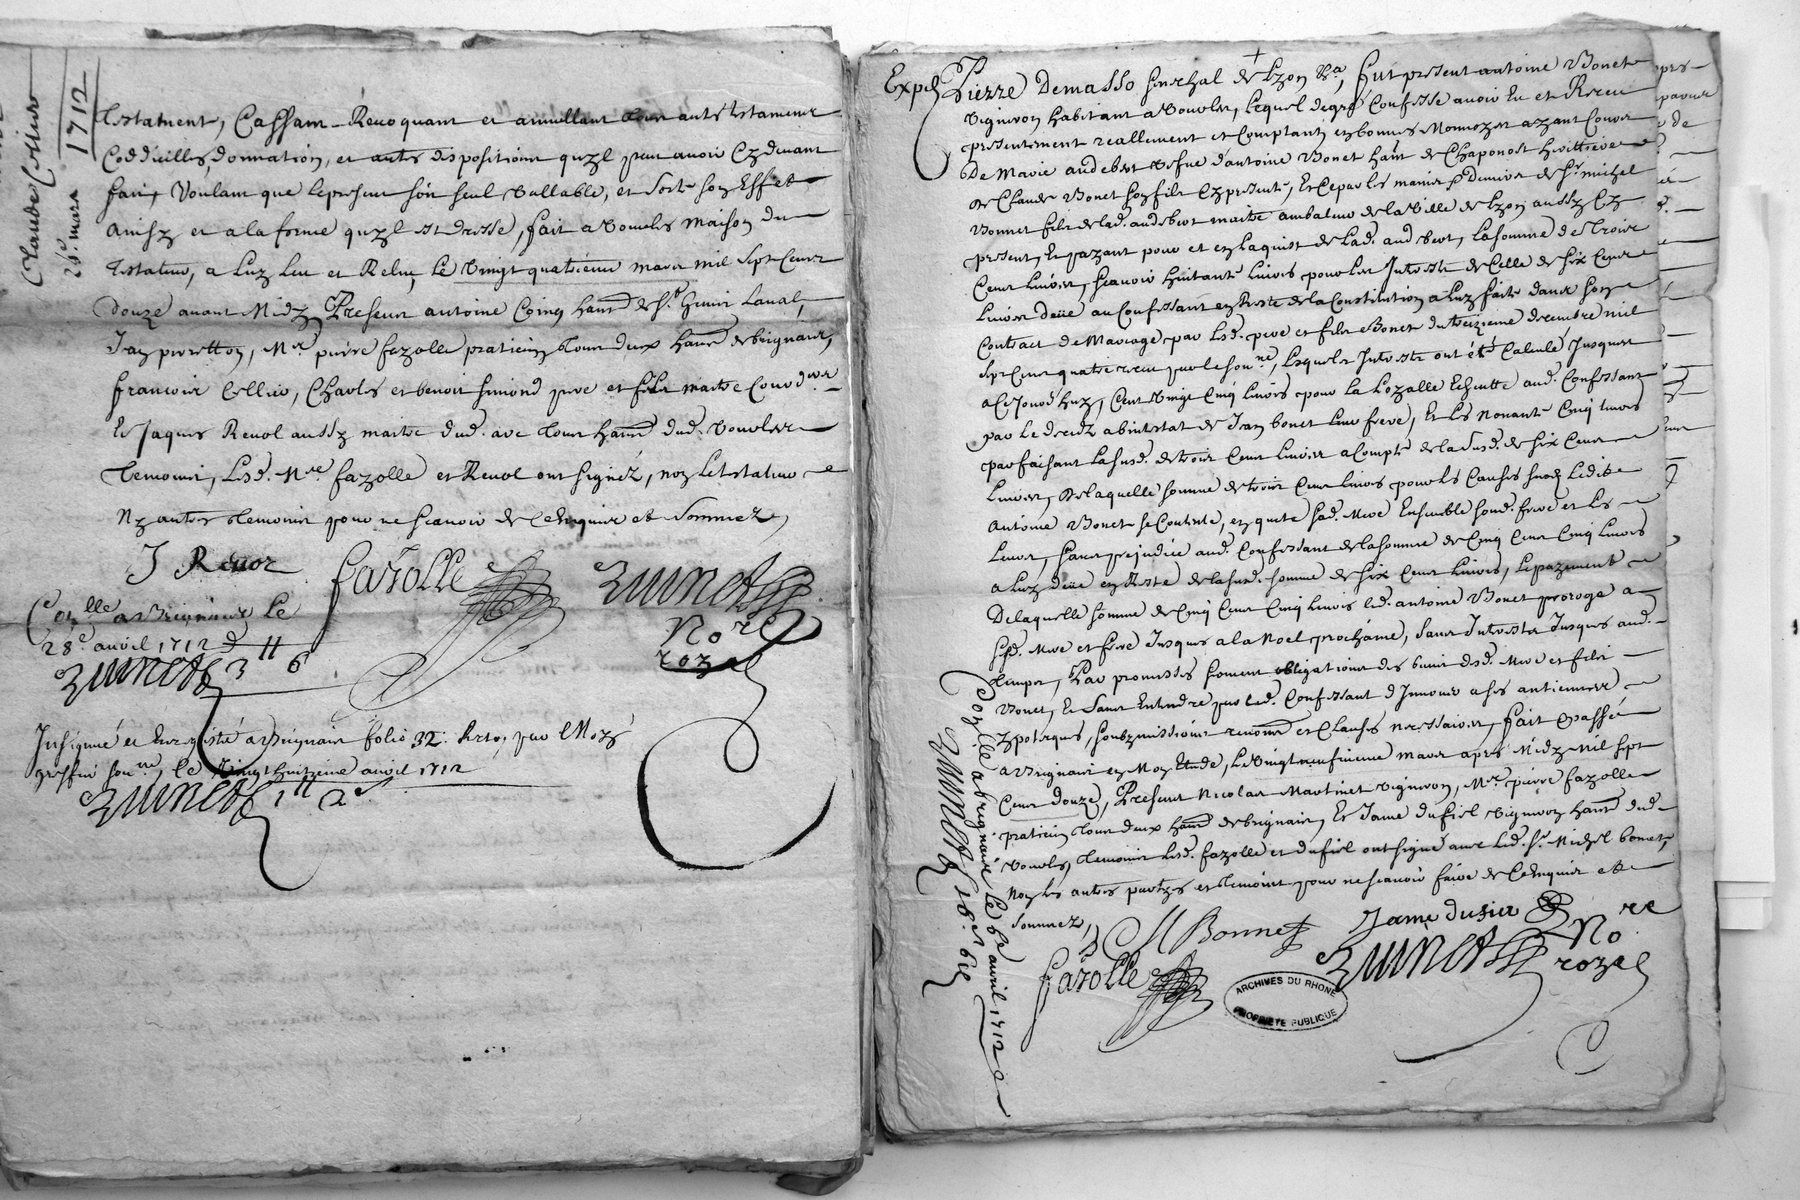 Claude Cellier
25e. mars 1712
testament, Cassant Revoquant et annullant tous auts testament
Coddicilles, donnation, et auts dispositions quyl peut avoir Cydevant
fait, Voulant que le present soit seul vallable, et sorte son Effet
ainsy et a la forme quyl est dressé, fait a Vourles maison du
testateur, a luy leu et Releu, le vingt quatrieme mars mil sept Cent
douze avant Midy, Present antoine Coing habt de St Genis Laval,
Jean perretton, Mre. pierre fazolle praticien tous deux habt de brignais,
francois Cellier, Charles et benoit simond pere et fils maitre
Et Jaques Revol aussy maitre dud. tous habt dud. Vourles
temoins, Lesd. Mre fazolle et Revol ont signéz, non le testateur
Ny autres temoins pour ne scavoir de Ce Enquis et sommez,
J Revol
fazolle
Zuinet
Nore
royal
Conlle a Brignais le
28e avril 1712
Zuinet
Insignué et Enregistré a Brignais folio 32: Rto, par Moy
greffier sousne, le vingt huitieme avril 1712
Zuinet
Exped Pierre Demasso senechal de Lyon &a, fut present antoine Bonet
Vigneron habitant a Vourles, lequel de gré Confesse avoir Eu et Receu
presentement reallement et Comptant en bonnes Monnoyes ayant Cours
De Marie audebert vefve d'antoine Bonet habt de Chaponost
de Claude Bonet son fils Cy present, Et Ce par les mains & deniers de Sr. michel
Bonnet fils de lad. audebert maitre ambaleur de la Ville de Lyon aussy Cy
present, Et payant pour et en laquist de lad. audebert, la somme de Trois
Cent Livres, scavoir huitante livres pour les Interests de Celle de six Cent
Livres deüe au Confessant en Reste de la Constitution a luy faite dans son
Contract de Mariage par lesd. pere et fils Bonet du treizieme decembre mil
sept Cent quatre receu par le sousne, lesquels Interests ont été Calculé Jusques
a Ce Jourd huy, Cent Vingt Cinq livres pour la Lozalle Echeutte aud. Confessant
par le decedz abintestat de Jean bonet leur frere, Et les Nonante Cinq livres
parfaisant la susd. de trois Cent Livres a Compte de la susd. de six Cent
Livres, De laquelle somme de trois Cent livres pour les Causes susd. Ledit
Antoine Bonet se Contente, en quitte sad. Mere Ensemble sond. frere et les
Leurs, sans prejudice aud. Confessant de la somme de Cinq Cent Cinq livres
a luy deüe en Reste de la susd. somme de six Cent livres, le payement
De laquelle somme de Cinq Cent Cinq livres led. antoine Bonet proroge a
sesd. Mere et frere Jusques a la Noel prochaine, sans Interests Jusques aud.
temps, Par promesses serment obligations des biens desd. Mere et fils
Bonet, Et sans Entendre par led. Confessant d Innover a ses antiennes
ypoteques, soubzmissions renoncons et Clauses necessaires, fait & passé
a Brignais en Mon Etude, le Vingt neufvieme mars apres Midy Mil sept
Cent douze, Present Nicolas Martinet vigneron, Mre pierre fazolle
praticien tous deux habt de brignais, Et Jame dusiel Vigneron habt dud.
Vourles, temoins lesd. fazolle et dusiel ont signé avec led. Sr Michel bonet,
Non les autres partyes et temoins pour ne scavoir faire de Ce Enquis et
sommez,
M Bonnet
Jame dusier
fazolle
Zuinet
Nore
royal
ARCHIVES DU RHONE
PROPRIETE PUBLIQUE
Conlle a brignais le 6e avril 1712
Zuinet